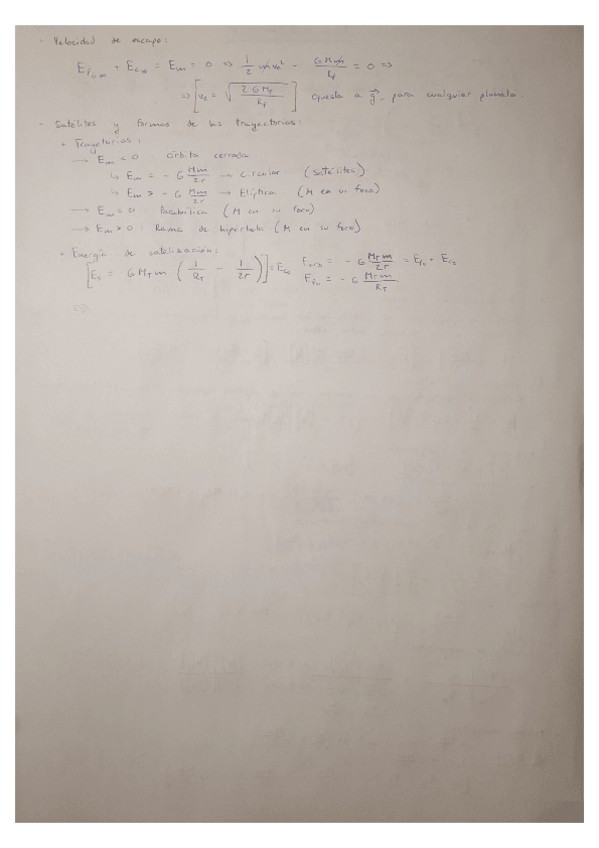 - Velocidad de escape:
E_{p_{G∞}} + E_{c∞} = E_m = 0 ⇒ 1/2 m v_e² - G M m / R_p = 0 ⇒
⇒ [ v_e = √(2 G M_p / R_p) ] opuesta a g⃗, para cualquier planeta.
- Satélites y formas de las trayectorias:
+ Trayectorias:
→ E_m < 0 órbita cerrada
↳ E_m = - G Mm/2r → Circular (Satélites)
↳ E_m > - G Mm/2r → Elíptica (M en su foco)
→ E_m = 0 : Parabólica (M en su foco)
→ E_m > 0 : Rama de hipérbola (M en su foco)
+ Energía de satelización:
[ E_s = G M_T m ( 1/R_T - 1/2r ) ] = E_{c_0} E_{orb} = - G M_T m / 2r = E_{p_0} + E_{c_0}
E_{p_0} = - G M_T m / R_T